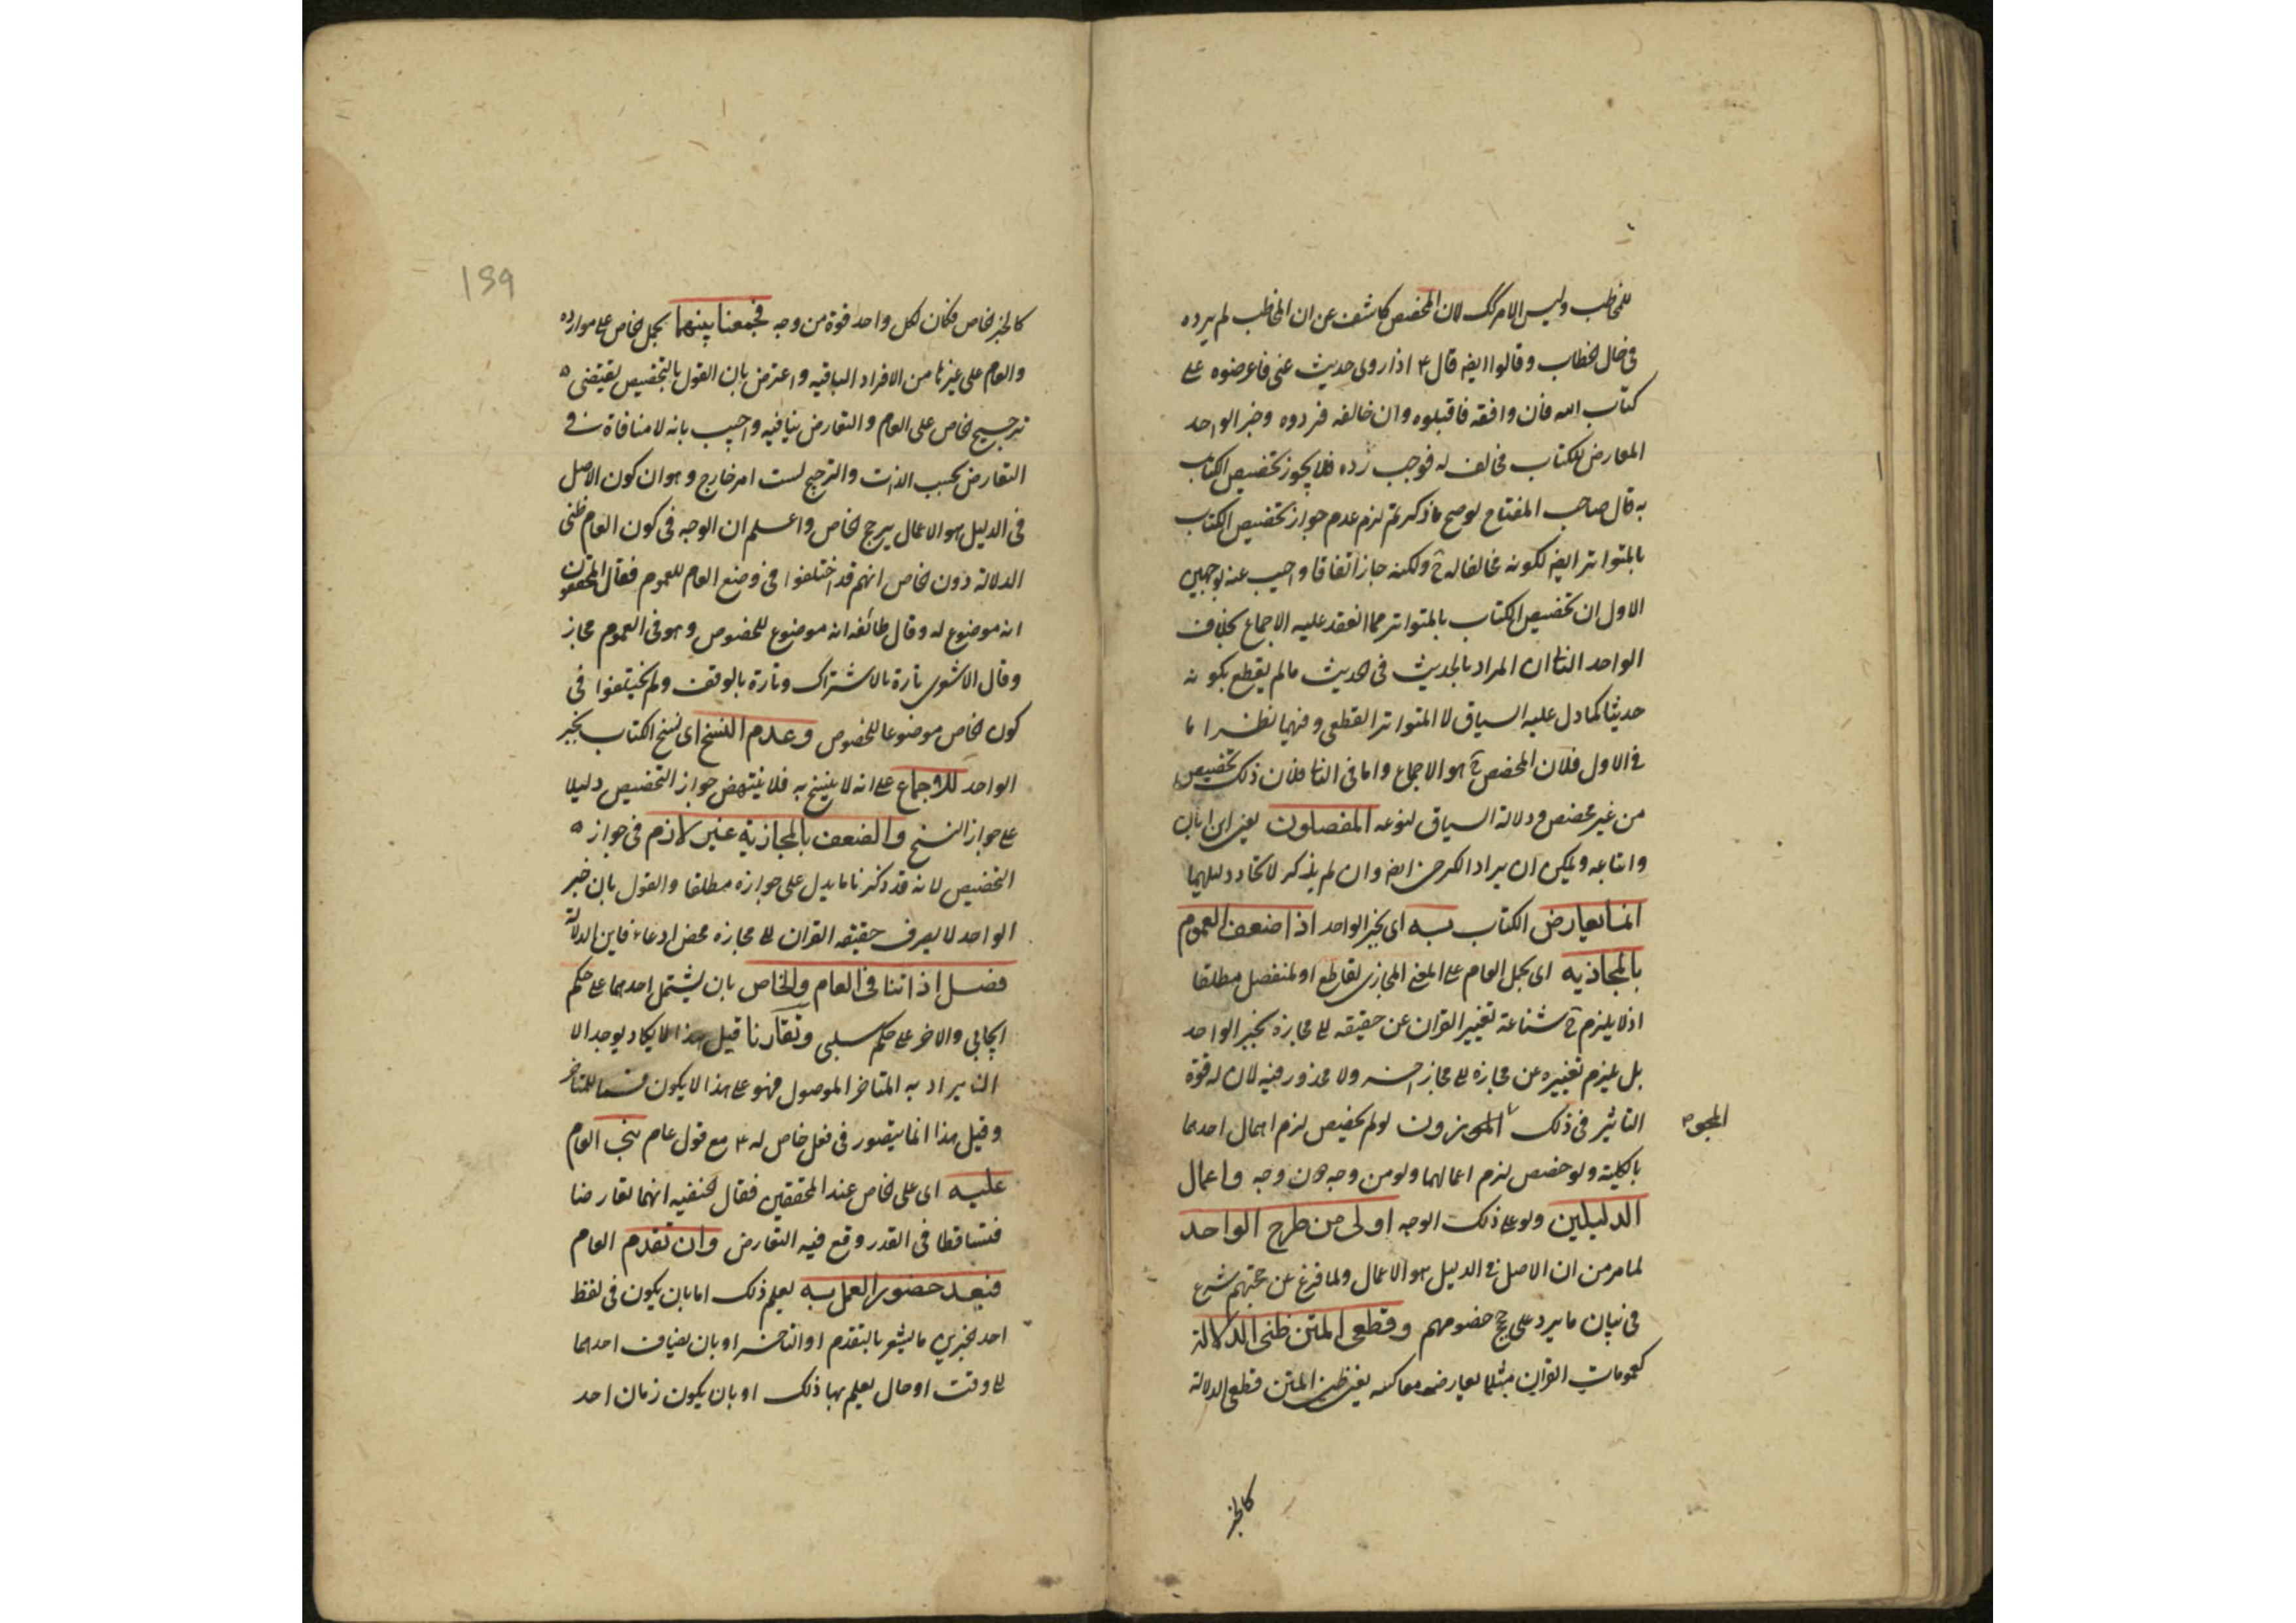 للمخاطب وليس الامر كك لان المخصص كاشف عن ان المخاطب لم يرده
فى حال الخطاب وقالوا ايضا قال ۴ اذا روى حديث عنى فاعرضوه على
كتاب الله فان وافقه فاقبلوه وان خالفه فردوه وخبر الواحد
المعارض للكتاب مخالف له فوجب رده فلا يجوز تخصيص الكتاب
به قال صاحب المفتاح لو صح ما ذكرتم لزم عدم جواز تخصيص الكتاب
بالمتواتر ايضا لكونه مخالفا له ح ولكنه جاز اتفاقا واجيب عنه بوجهين
الاول ان تخصيص الكتاب بالمتواتر مما انعقد عليه الاجماع بخلاف
الواحد الثانى ان المراد بالحديث فى الحديث ما لم يقطع بكونه
حديثا كما دل عليه السياق لا المتواتر القطعى وفيهما نظر اما
فى الاول فلان المخصص ح هو الاجماع واما فى الثانى فلان ذلك تخصيص
من غير مخصص ودلالة السياق لنوعه المفصلون يعنى ابن ابان
واتباعه ويمكن ان يراد الكرخى ايضا وان لم يذكر لاتحاد دليلهما
انما يعارض الكتاب به اى بخبر الواحد اذا ضعف العموم
بالمجازيه اى بحمل العام على المعنى المجازى لقاطع او لمنفصل مطلقا
اذ لا يلزم ح شناعة تغيير القران عن حقيقته الى مجازه بخبر الواحد
بل يلزم تغييره عن مجازه الى مجاز اخر ولا محذور فيه لان له قوة
التاثير فى ذلك المجوزون لو لم يخصص لزم اهمال احدهما
المجو
بالكلية ولو خصص لزم اعمالهما ولو من وجه دون وجه واعمال
الدليلين ولو على ذلك الوجه اولى من طرح الواحد
لما مر من ان الاصل فى الدليل هو الاعمال ولما فرغ عن حجتهم شرع
فى بيان ما يرد على حجج خصومهم وقطعى المتن ظنى الدلالة
كعمومات القران مثلا يعارضه معاكسه يعنى ظنى المتن قطعى الدلالة
كالخبر
199
كالخبر الخاص فكان لكل واحد قوة من وجه فجمعنا بينهما بحمل الخاص على موارده
والعام على غيرها من الافراد الباقيه واعترض بان القول بالتخصيص يقتضى
ترجيح الخاص على العام والتعارض ينافيه واجيب بانه لا منافاة فى
التعارض بحسب الذات والترجيح لست امر خارج وهو ان كون الاصل
فى الدليل هو الاعمال يرجح الخاص واعلم ان الوجه فى كون العام ظنى
الدلالة دون الخاص انهم قد اختلفوا فى وضع العام للعموم فقال المحققون
انه موضوع له وقال طائفه انه موضوع للخصوص وهو فى العموم مجاز
وقال الاشعرى تارة بالاشتراك وتارة بالوقف ولم يختلفوا فى
كون الخاص موضوعا للخصوص وعدم النسخ اى نسخ الكتاب بخبر
الواحد للاجماع على انه لا ينسخ به فلا ينتهض جواز التخصيص دليلا
على جواز النسخ والضعف بالمجازية غير لازم فى جواز
التخصيص لانه قد ذكرنا ما يدل على جوازه مطلقا والقول بان خبر
الواحد لا يصرف حقيقه القران الى مجازه محض ادعاء فاين الدلالة
فصل اذا تنافى العام والخاص بان يشتمل احدهما على حكم
ايجابى والاخر على حكم سلبى وتقارنا قيل هذا لا يكاد يوجد الا
ان يراد به المتاخر الموصول فهو على هذا لا يكون قسما للمتاخر
وقيل هذا انما يتصور فى فعل خاص له ۴ مع قول عام بنى العام
عليه اى على الخاص عند المحققين فقال الحنفيه انهما تعارضا
فتساقطا فى القدر وقع فيه التعارض وان تقدم العام
فبعد حضور العمل به يعلم ذلك اما بان يكون فى لفظ
احد الخبرين ما يشعر بالتقدم او التاخر او بان يضاف احدهما
الى وقت او حال يعلم بها ذلك او بان يكون زمان احد